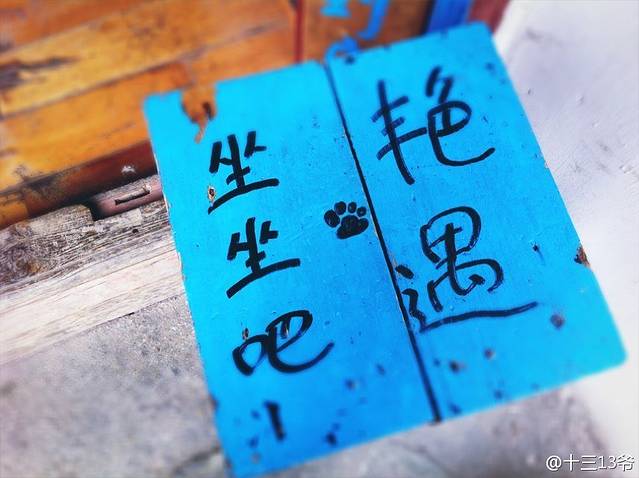 艳遇
坐坐吧！
@十三13爷